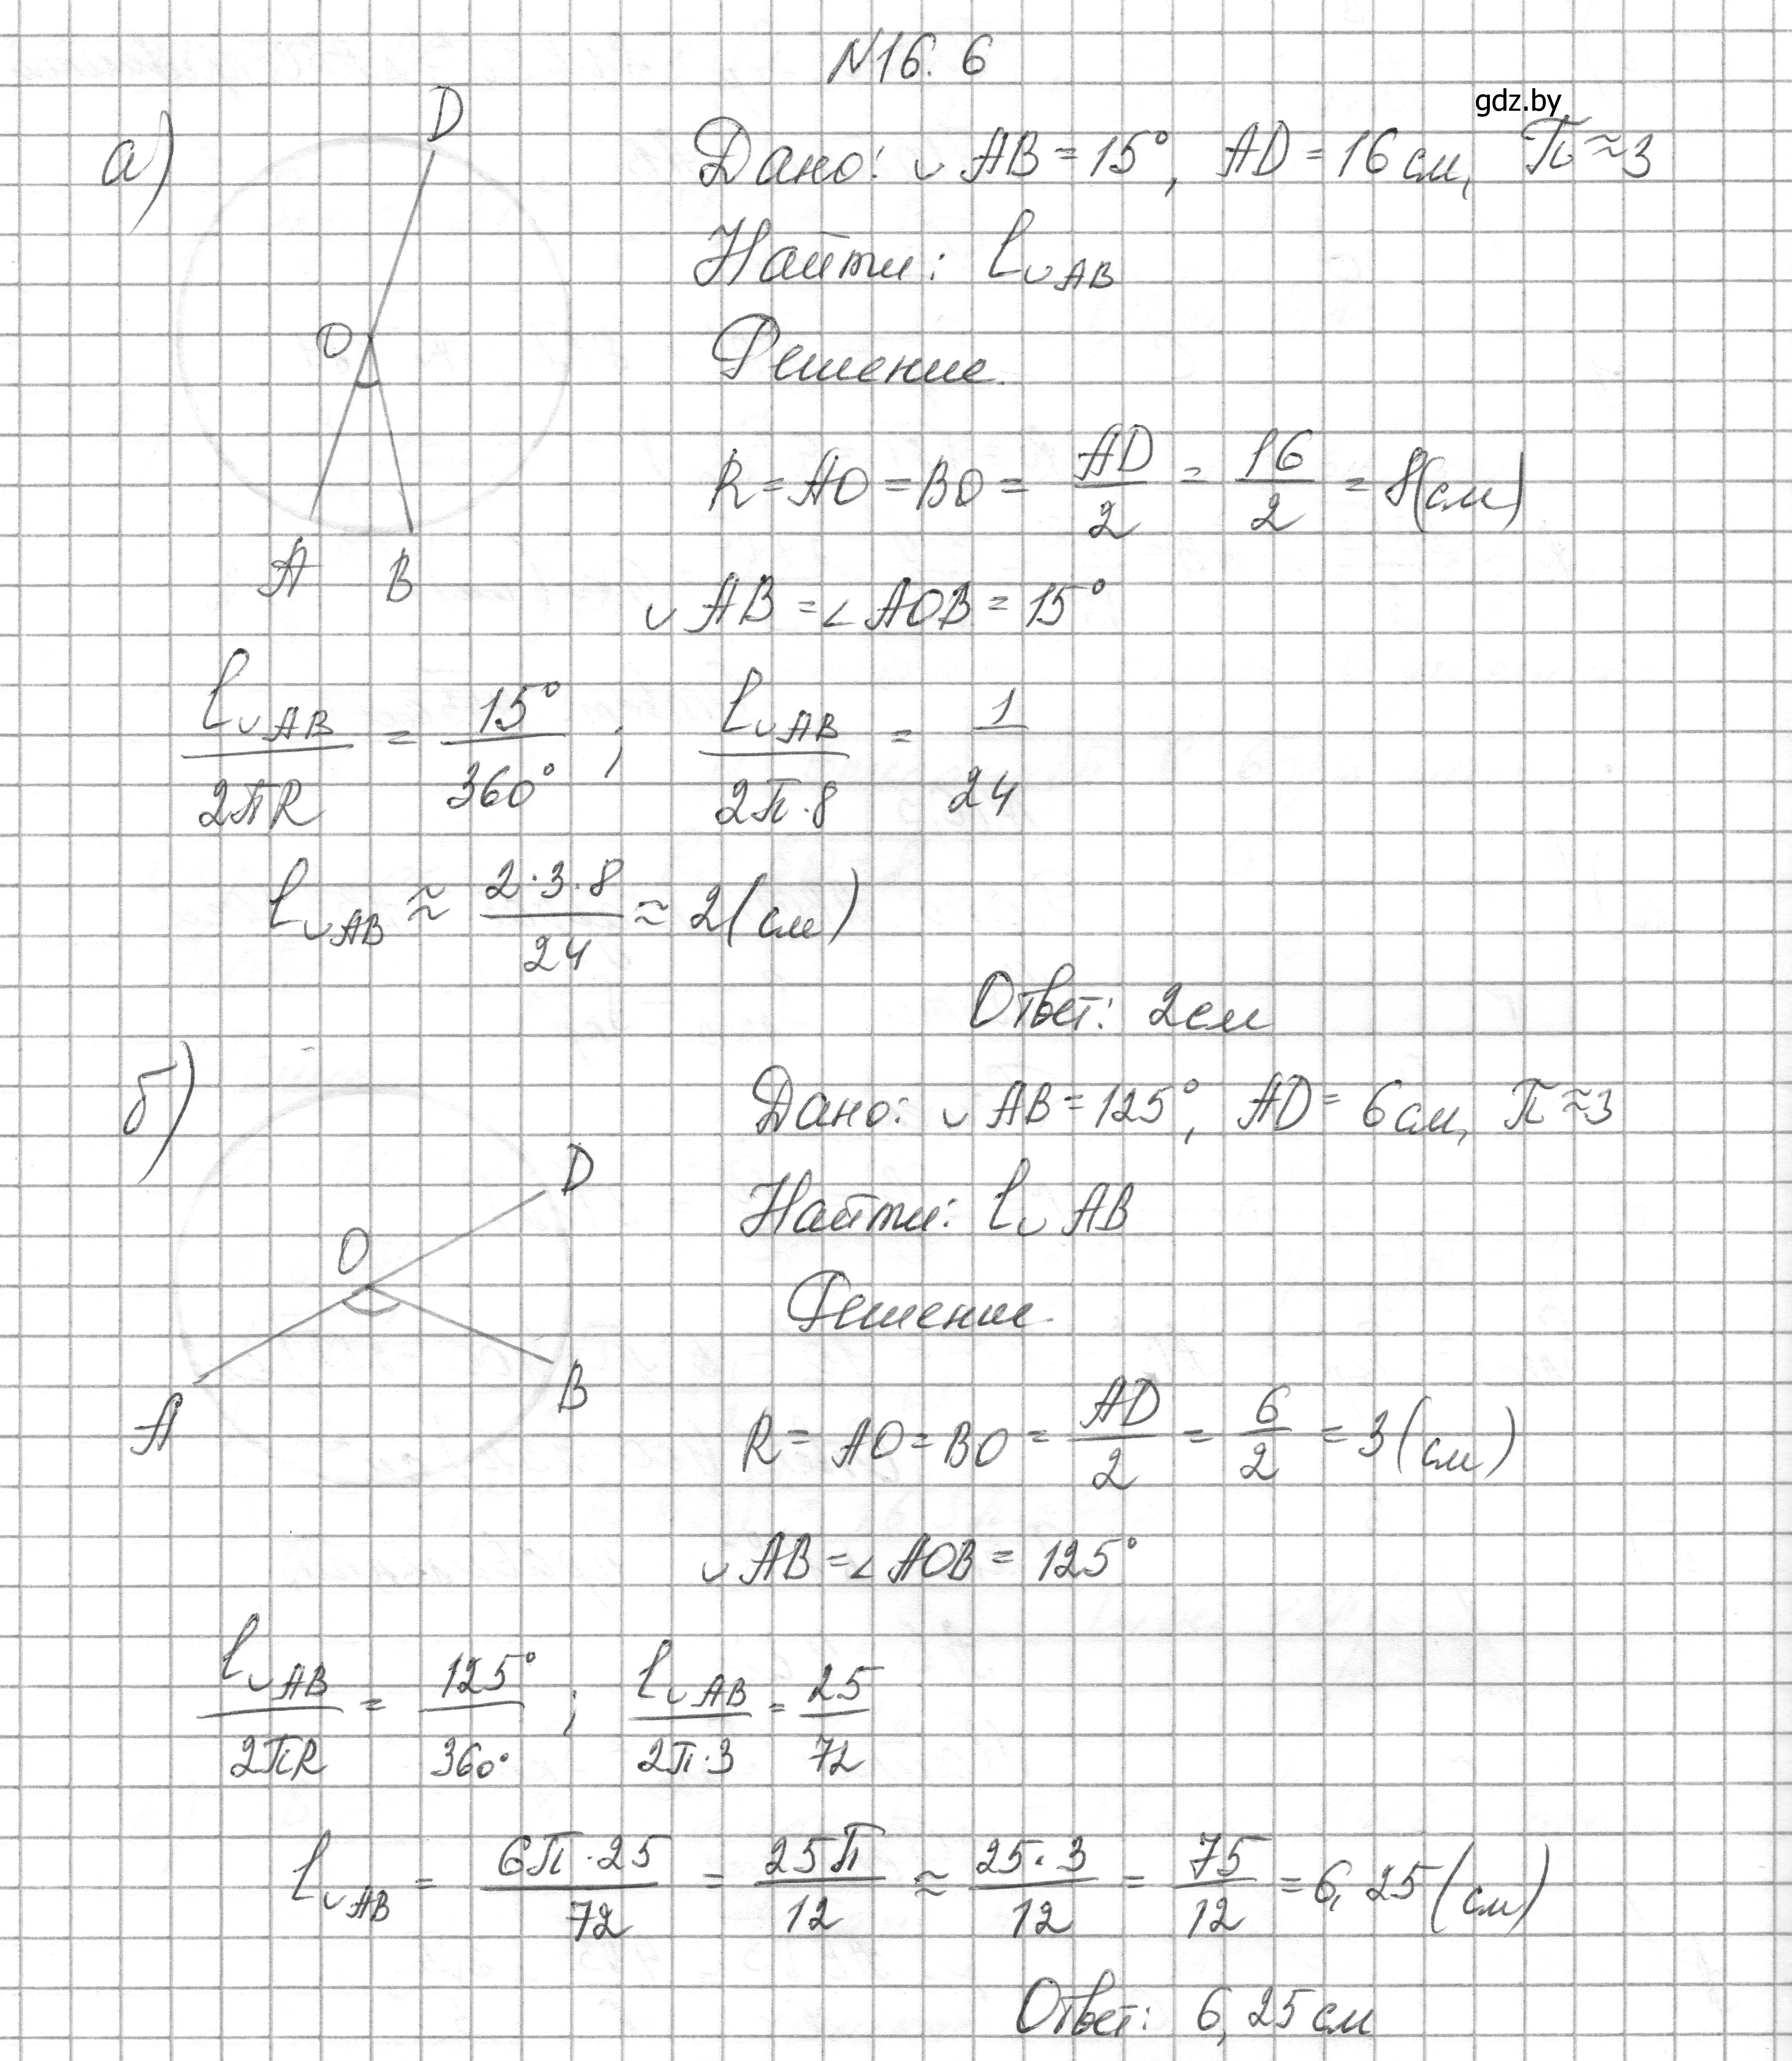 N16.6
gdz.by
а)
D
O
A B
Дано: ◡AB = 15°, AD = 16 см, π ≈ 3
Найти: l◡AB
Решение.
R = AO = BO = AD/2 = 16/2 = 8(см)
◡AB = ∠AOB = 15°
l◡AB/2πR = 15°/360° ; l◡AB/2π·8 = 1/24
l◡AB ≈ 2·3·8/24 ≈ 2(см)
Ответ: 2см
б)
D
O
A
B
Дано: ◡AB = 125°, AD = 6см, π ≈ 3
Найти: l◡AB
Решение.
R = AO = BO = AD/2 = 6/2 = 3(см)
◡AB = ∠AOB = 125°
l◡AB/2πR = 125°/360° ; l◡AB/2π·3 = 25/72
l◡AB = 6π·25/72 = 25π/12 ≈ 25·3/12 = 75/12 = 6,25(см)
Ответ: 6,25см